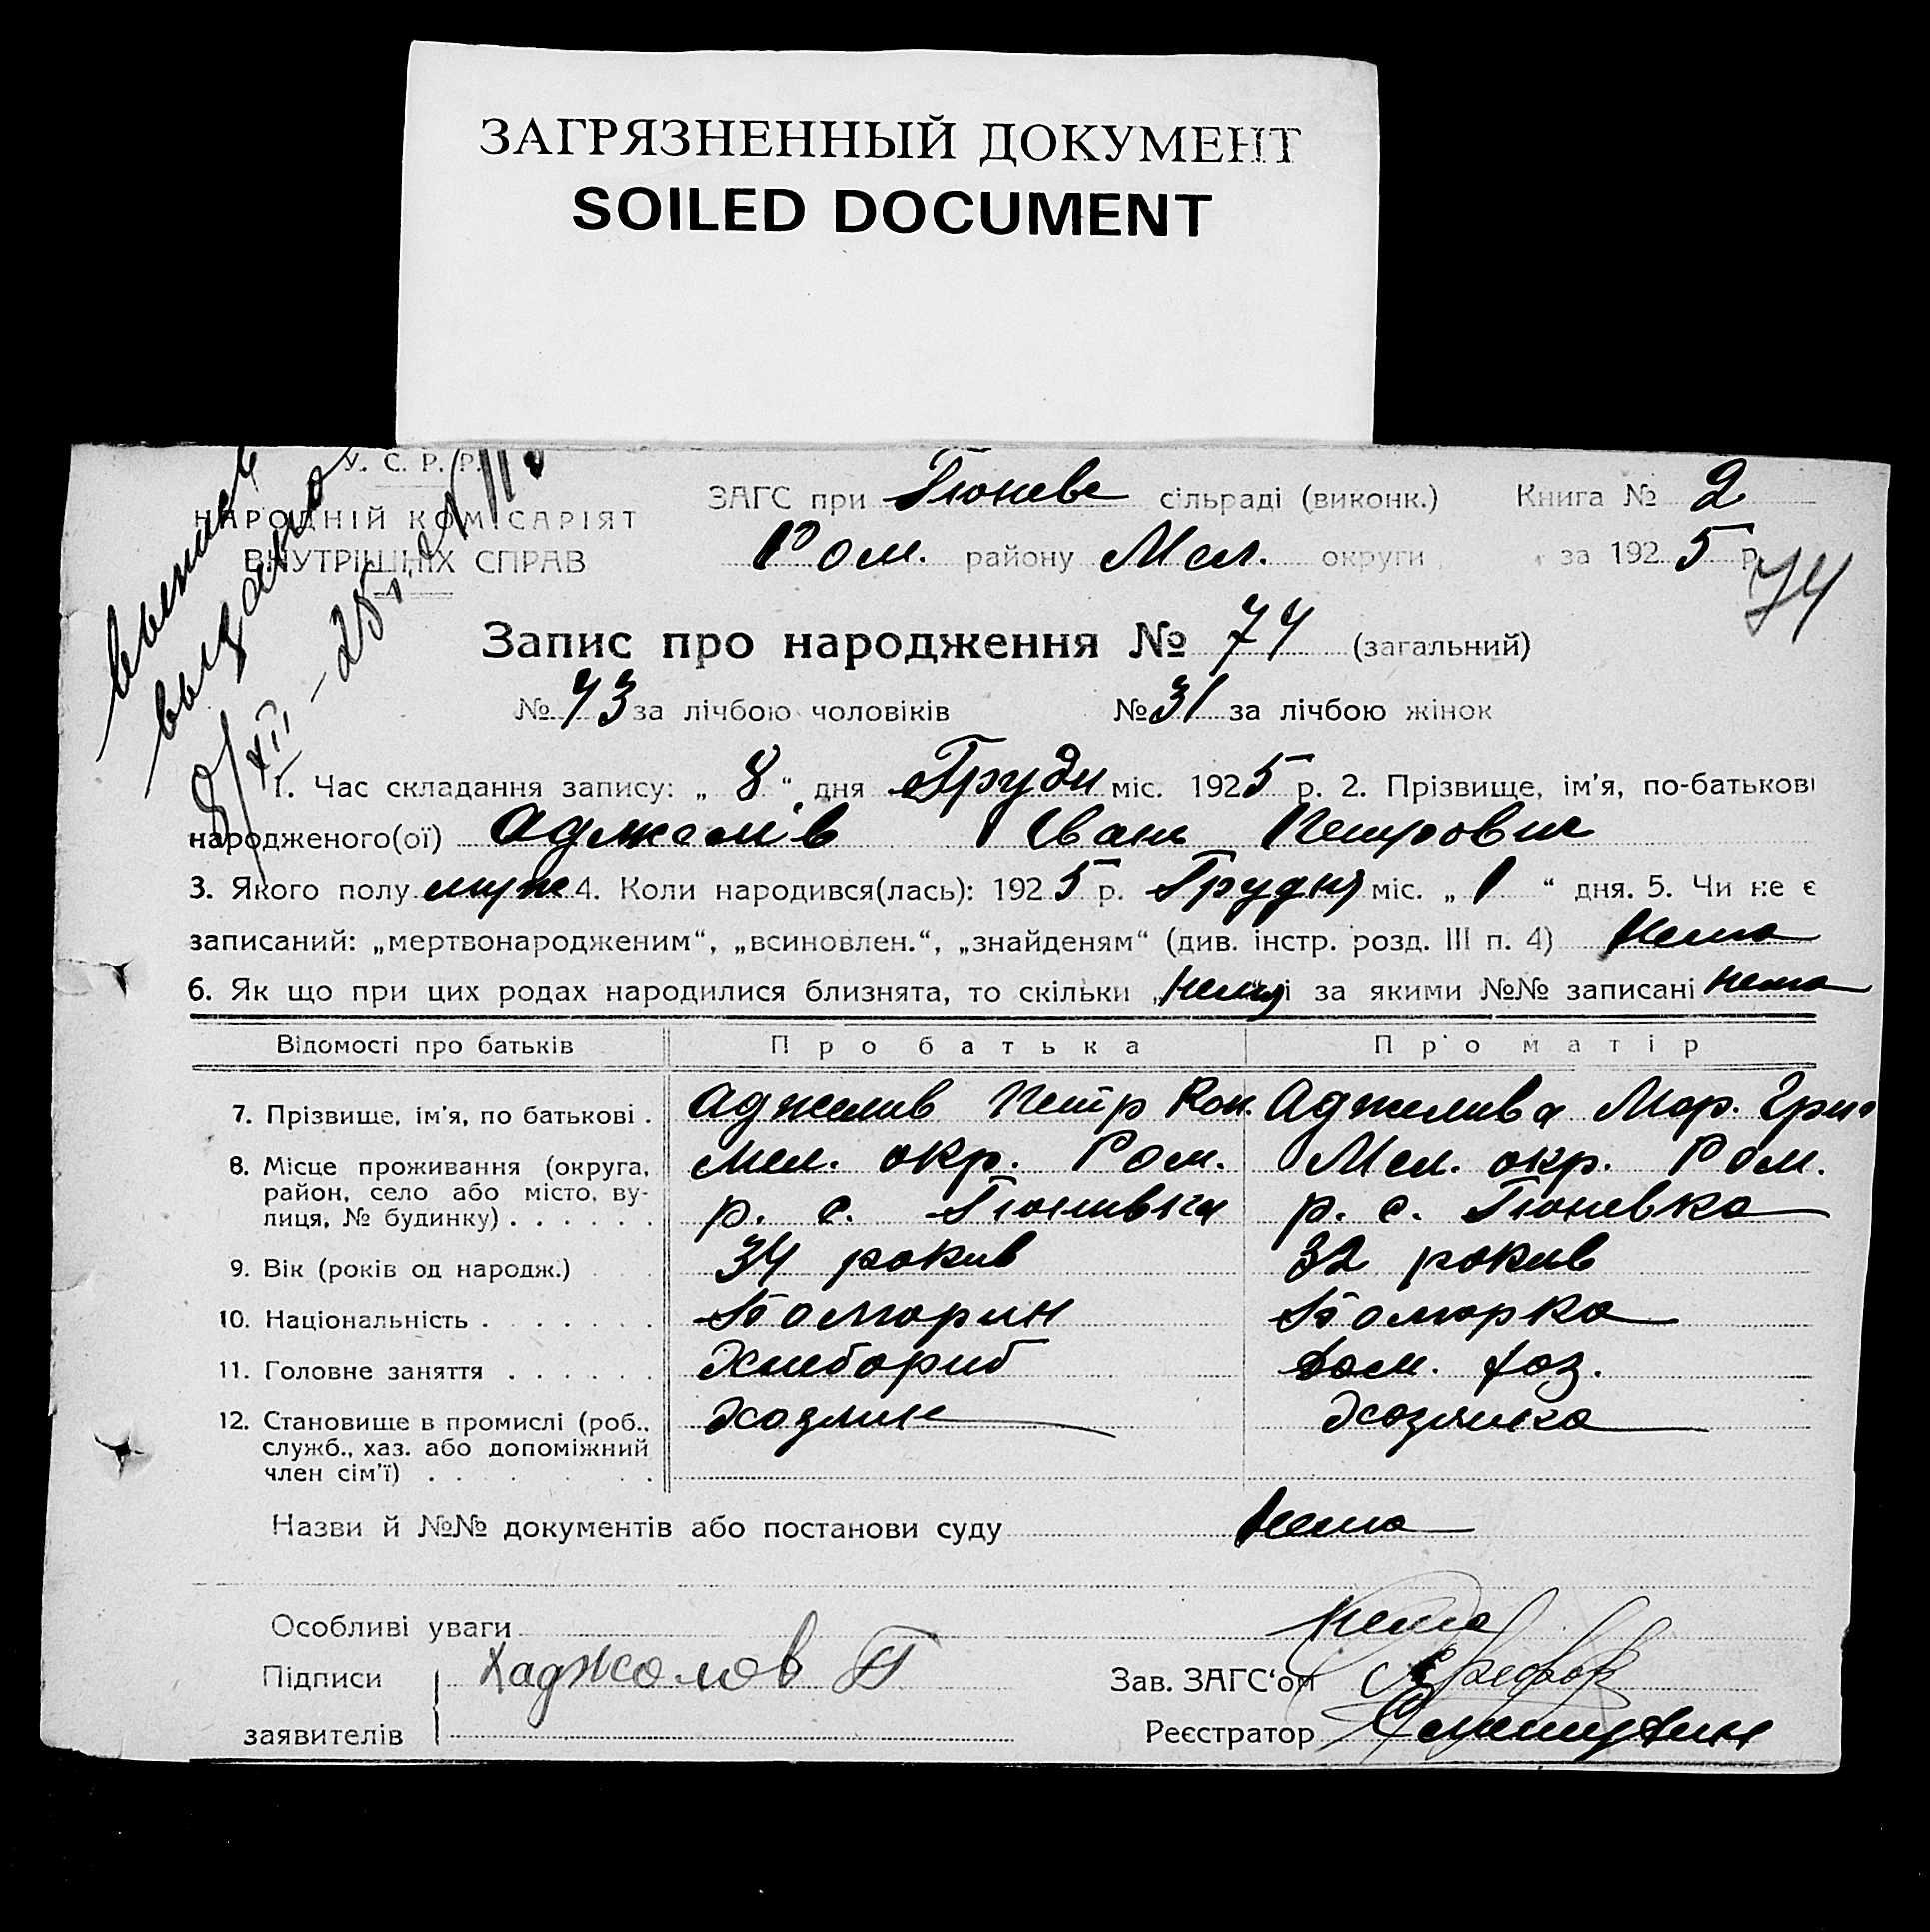 ЗАГРЯЗНЕННЫЙ ДОКУМЕНТ
SOILED DOCUMENT
У. С. Р. Р.
НАРОДНІЙ КОМІСАРІЯТ
ВНУТРІШНІХ СПРАВ
выпись
выдано
8/XII - 25 г.
ЗАГС при Гюневс сільраді (виконк.) Книга № 2
Ром. району Мел. округи за 1925 р.
74
Запис про народження № 74 (загальний)
№ 43 за лічбою чоловіків № 31 за лічбою жінок
1. Час складання запису: „ 8 “ дня Груди міс. 1925 р. 2. Прізвище, ім'я, по-батькові
народженого(ої) Аджемів Іван Петрович
3. Якого полу муж 4. Коли народився(лась): 1925 р. Грудня міс. „ 1 “ дня. 5. Чи не є
записаний: „мертвонародженим“, „всиновлен.“, „знайденям“ (див. інстр. розд. III п. 4) Нема
6. Як що при цих родах народилися близнята, то скільки нема і за якими №№ записані нема
Відомості про батьків Про батька Про матір
7. Прізвище, ім'я, по батькові . Аджемив Петр Кон. Аджемива Мар. Григ
8. Місце проживання (округа, Мел. окр. Ром. Мел. окр. Ром.
район, село або місто, ву-
лиця, № будинку) . . . . . . р. с. Гюнивка р. с. Гюневка
9. Вік (років од народж.) 34 рокив 32 рокив
10. Національність . . . . . . . Болгарин Болгарка
11. Головне заняття . . . . . . Хлибориб Дом. хоз.
12. Становище в промислі (роб., Хозяин Хозяика
служб., хаз. або допоміжний
член сім'ї) . . . . . .
Назви й №№ документів або постанови суду Нема
Особливі уваги Нема
Підписи Хаджемов П Зав. ЗАГС‘ом
заявителів Реєстратор